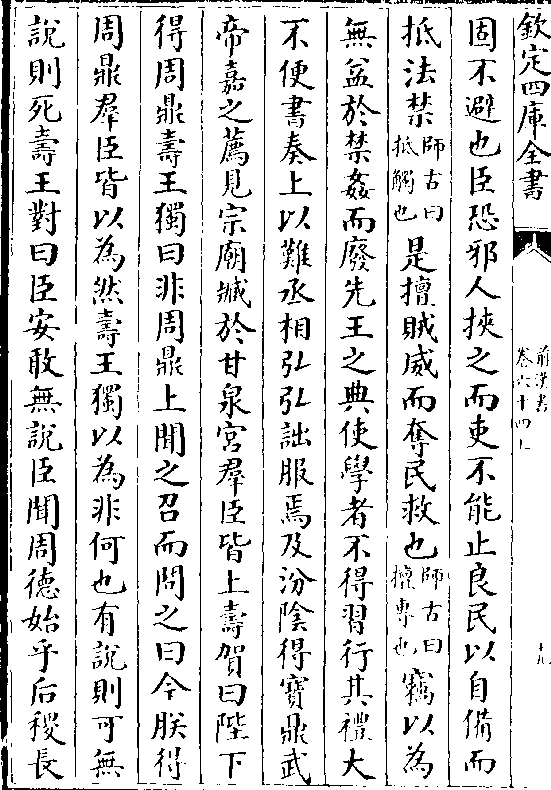 欽定四庫全書
前漢書
卷六十四上
十九
固不避也臣恐邪人挾之而吏不能止良民以自備而
抵法禁師古曰抵觸也是擅賊威而奪民救也師古曰擅專也竊以為
無益於禁姦而廢先王之典使學者不得習行其禮大
不便書奏上以難丞相弘弘詘服焉及汾陰得寶鼎武
帝嘉之薦見宗廟臧於甘泉宮羣臣皆上壽賀曰陛下
得周鼎壽王獨曰非周鼎上聞之召而問之曰今朕得
周鼎羣臣皆以為然壽王獨以為非何也有說則可無
說則死壽王對曰臣安敢無說臣聞周德始乎后稷長